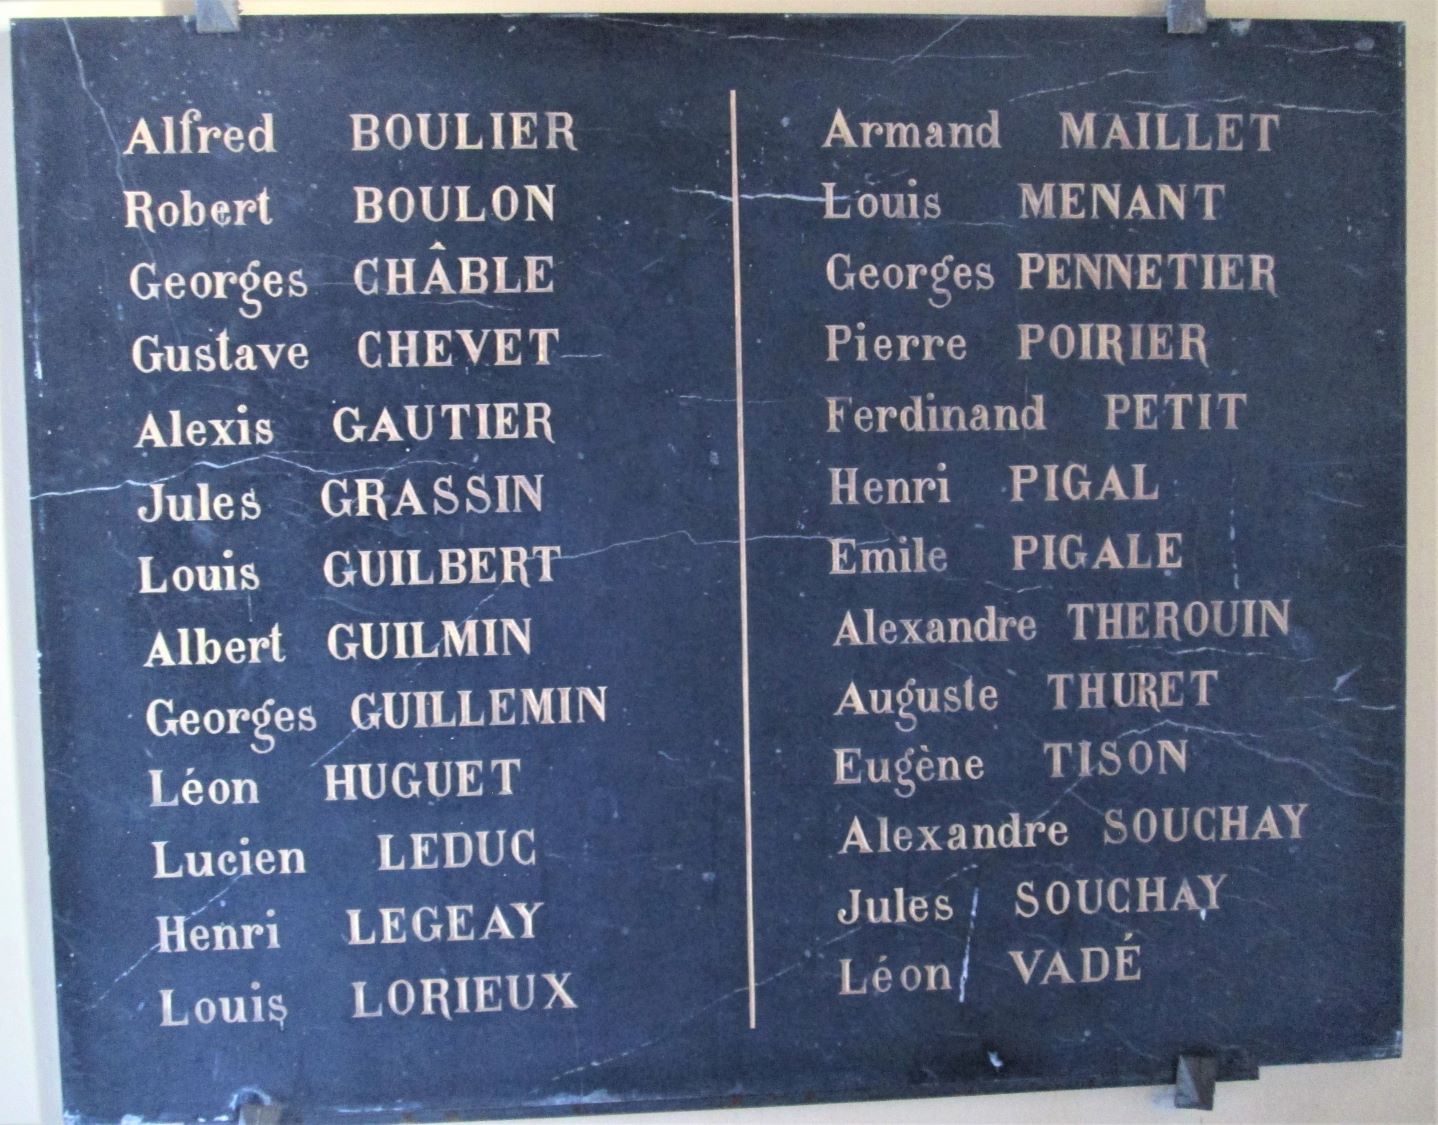 Alfred BOULIER
Robert BOULON
Georges CHÂBLE
Gustave CHEVET
Alexis GAUTIER
Jules GRASSIN
Louis GUILBERT
Albert GUILMIN
Georges GUILLEMIN
Léon HUGUET
Lucien LEDUC
Henri LEGEAY
Louis LORIEUX
Armand MAILLET
Louis MENANT
Georges PENNETIER
Pierre POIRIER
Ferdinand PETIT
Henri PIGAL
Emile PIGALE
Alexandre THEROUIN
Auguste THURET
Eugène TISON
Alexandre SOUCHAY
Jules SOUCHAY
Léon VADÉ